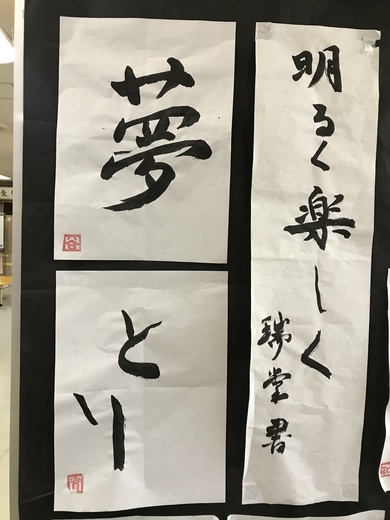 明るく楽しく
瑞堂書
夢
とり